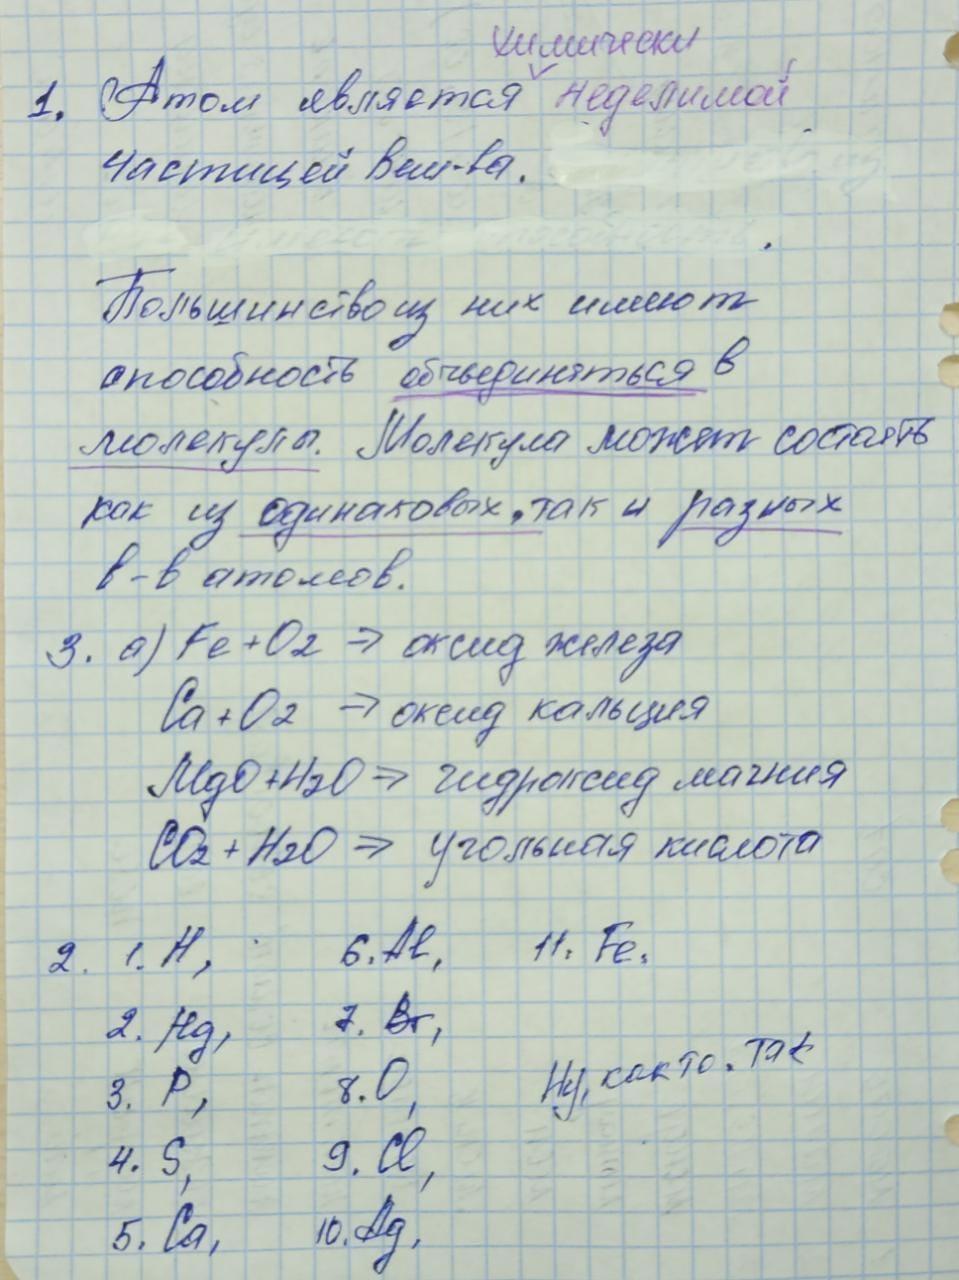 химически
1. Атом является неделимой
частицей вещ-ва.
Большинство из них имеют
способность объединяться в
молекулы. Молекула может состаять
как из одинаковых, так и разных
в-в атомов.
3. а) Fe + O2 → оксид железа
Ca + O2 → оксид кальция
MgO + H2O → гидроксид магния
CO2 + H2O → угольная кислота
2. 1. H, 6. Al, 11. Fe.
2. Hg, 7. Br,
3. P, 8. O, Ну, как то. так
4. S, 9. Cl,
5. Ca, 10. Ag,